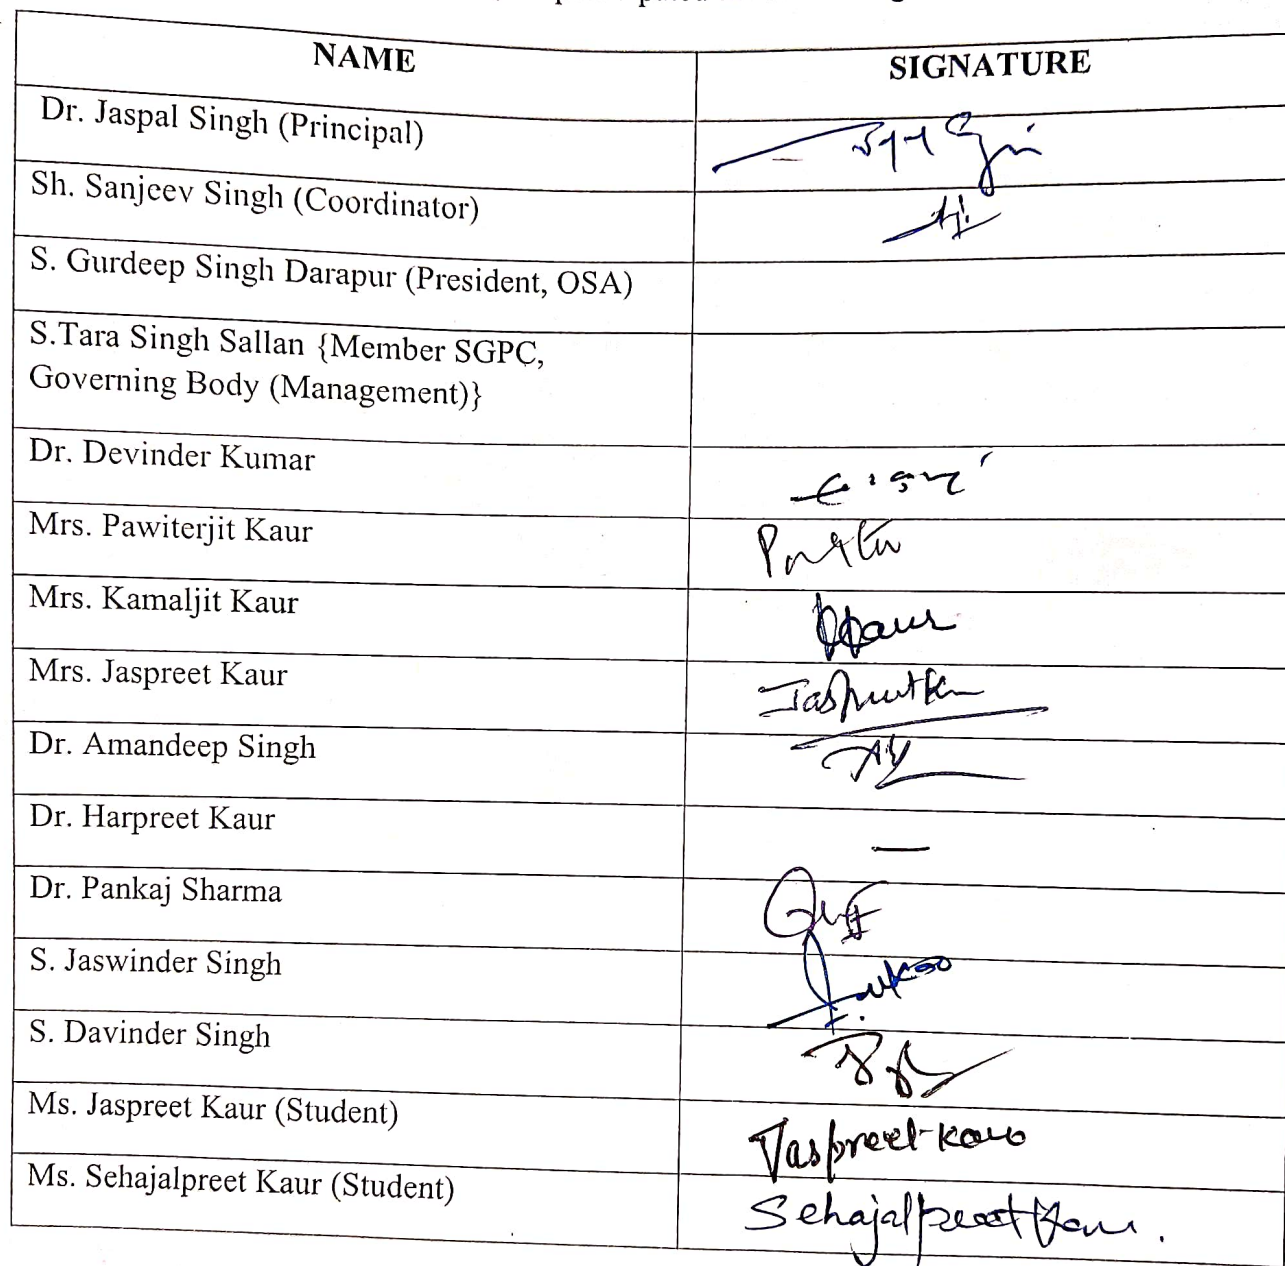 NAME SIGNATURE
Dr. Jaspal Singh (Principal)
Sh. Sanjeev Singh (Coordinator)
S. Gurdeep Singh Darapur (President, OSA)
S.Tara Singh Sallan {Member SGPC,
Governing Body (Management)}
Dr. Devinder Kumar
Mrs. Pawiterjit Kaur
Mrs. Kamaljit Kaur
Mrs. Jaspreet Kaur
Dr. Amandeep Singh
Dr. Harpreet Kaur —
Dr. Pankaj Sharma
S. Jaswinder Singh
S. Davinder Singh
Ms. Jaspreet Kaur (Student) Jaspreet Kaur
Ms. Sehajalpreet Kaur (Student) Sehajalpreet Kaur.